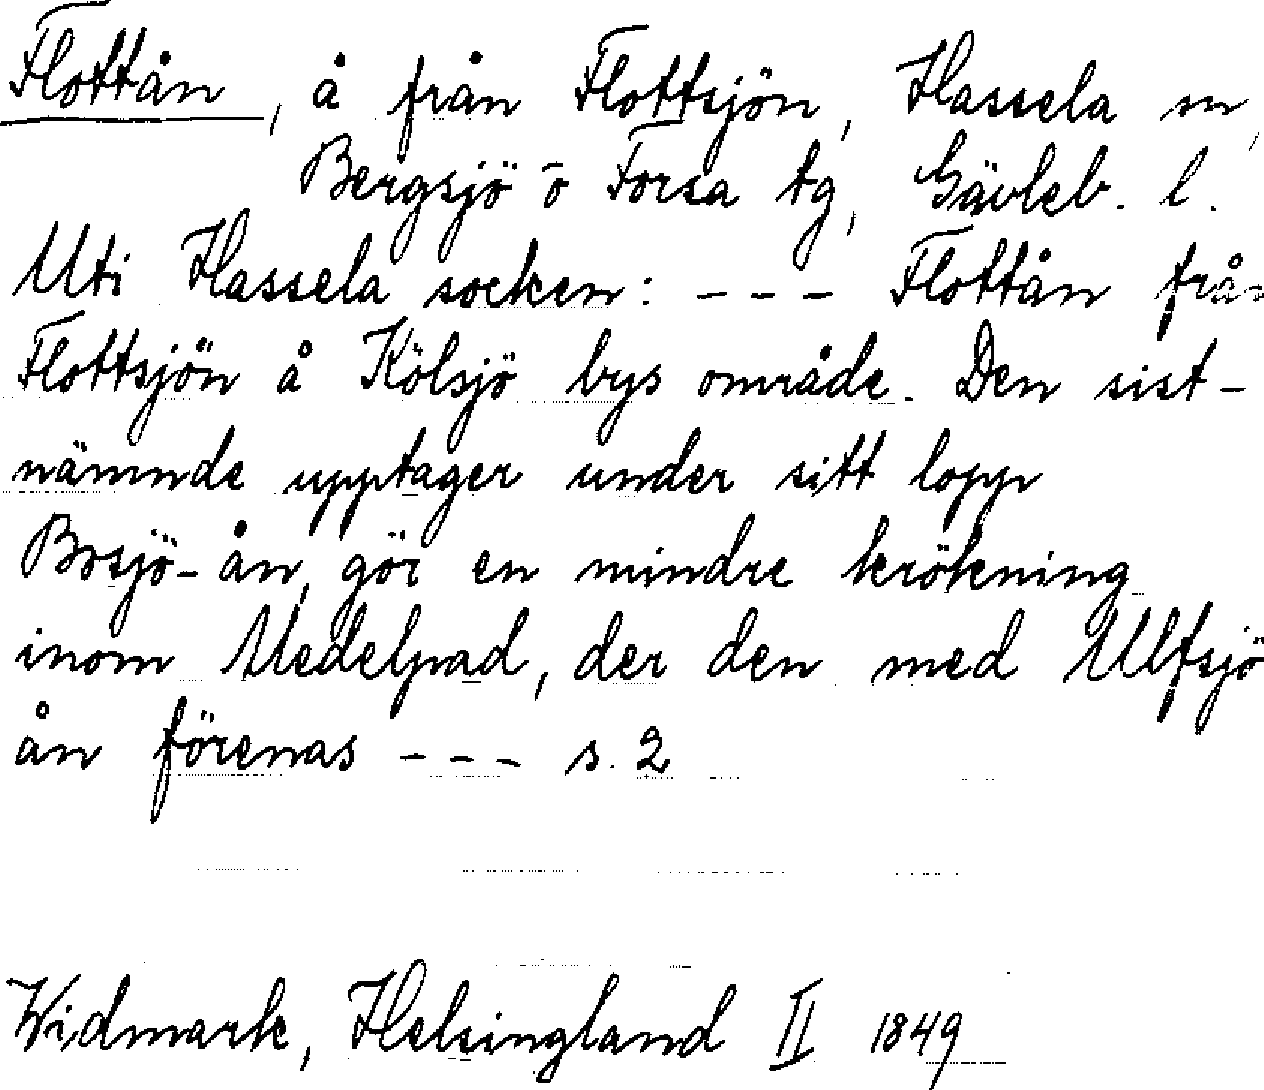 Flottån, å från Flottsjön, Hassela sn,
Bergsjö o Forsa tg, Gävleb. l.
Uti Hassela socken: - - - Flottån från
Flottsjön å Kölsjö bys område. Den sist-
nämnde upptager under sitt lopp
Bosjö-ån, gör en mindre krökning
inom Medelpad, der den med Ulfsjö
ån förenas - - - s. 2
Widmark, Helsingland II 1849